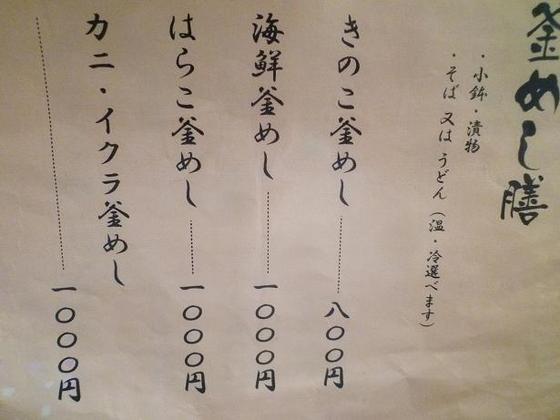 釜めし膳
・小鉢・漬物
・そば 又は うどん（温・冷選べます）
きのこ釜めし 八〇〇円
海鮮釜めし 一〇〇〇円
はらこ釜めし 一〇〇〇円
カニ・イクラ釜めし
一〇〇〇円